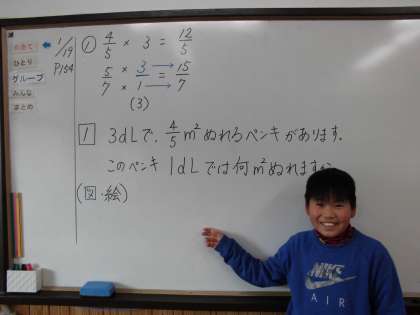 めあて
ひとり
グループ
みんな
まとめ
1/19
P154
① 4/5 × 3 = 12/5
5/7 × 3/1 = 15/7
(3)
1 3dLで、4/5 m²ぬれるペンキがあります。
このペンキ 1dLでは何m²ぬれますか
(図・絵)
NIKE
AIR